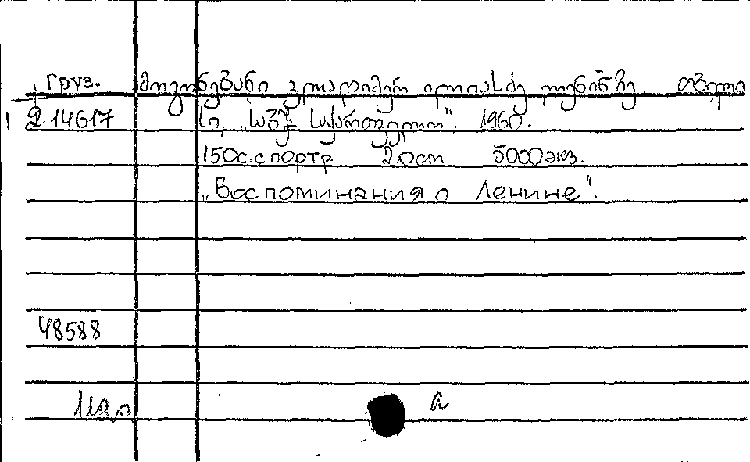 груз. მოგონებანი ვლადიმერ ილიას ძე ლენინზე თბილი
214617 სი, „საბჭ. საქართველო". 1960.
150с. с портр 20см 5000 экз.
„Воспоминания о Ленине".
48588